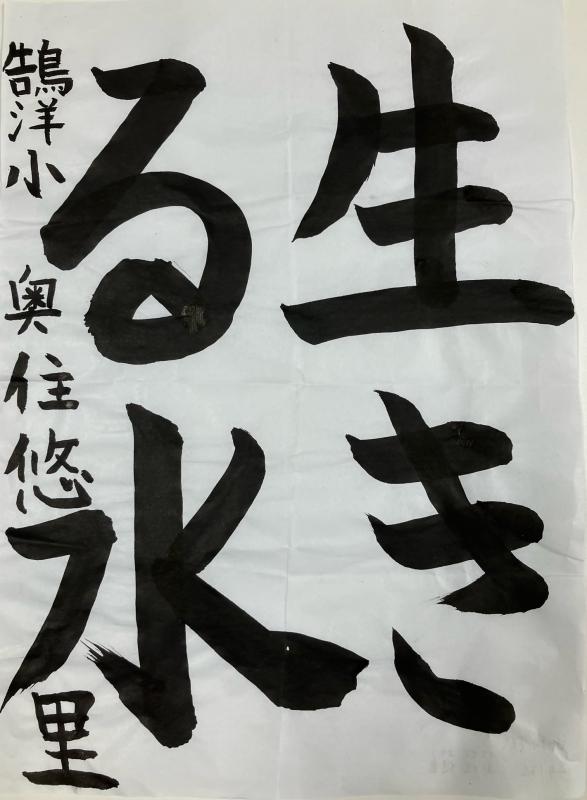 生き
る水
鵠洋小 奥住悠里